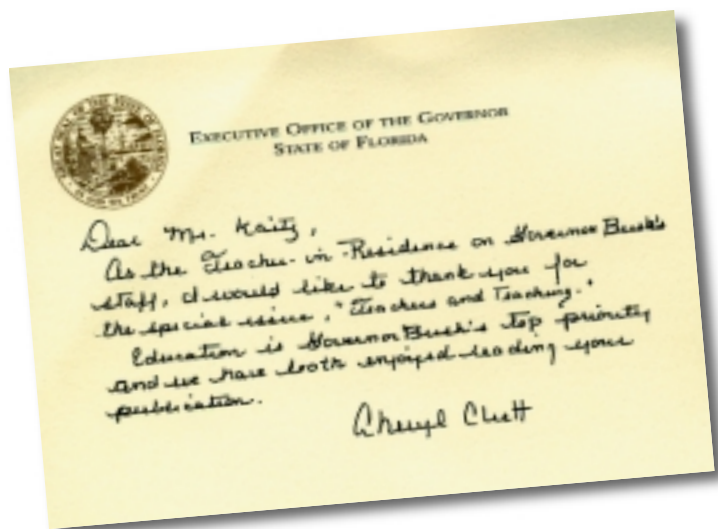 GREAT SEAL OF THE STATE OF FLORIDA
IN GOD WE TRUST
EXECUTIVE OFFICE OF THE GOVERNOR
STATE OF FLORIDA
Dear Mr. Kaitz,
As the Teacher-in-Residence on Governor Bush's
staff, I would like to thank you for
the special issue, "Teachers and Teaching."
Education is Governor Bush's top priority
and we have both enjoyed reading your
publication.
Cheryl